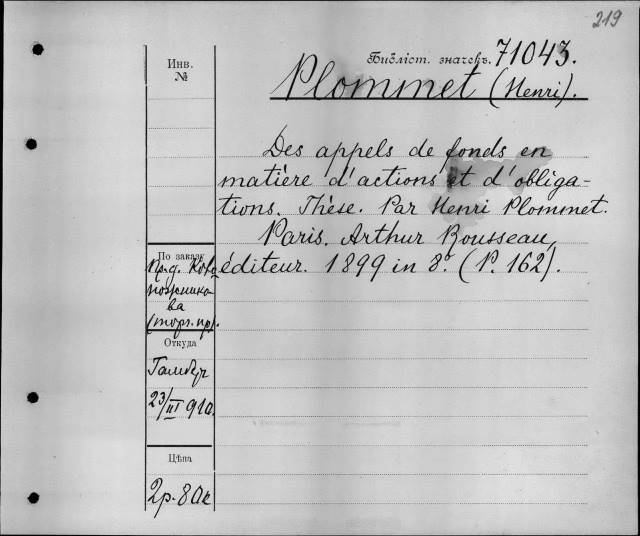 219
Библіст. значекъ. 71043.
Plommet (Henri).
Инв.
№
Des appels de fonds en
matière d'actions et d'obliga-
tions. Thèse. Par Henri Plommet.
Paris. Arthur Rousseau,
éditeur. 1899 in 8º. (P. 162).
По заказу
Пр-д.
(торг. пр).
Откуда
23/III 910.
Цѣна
2р. 80к